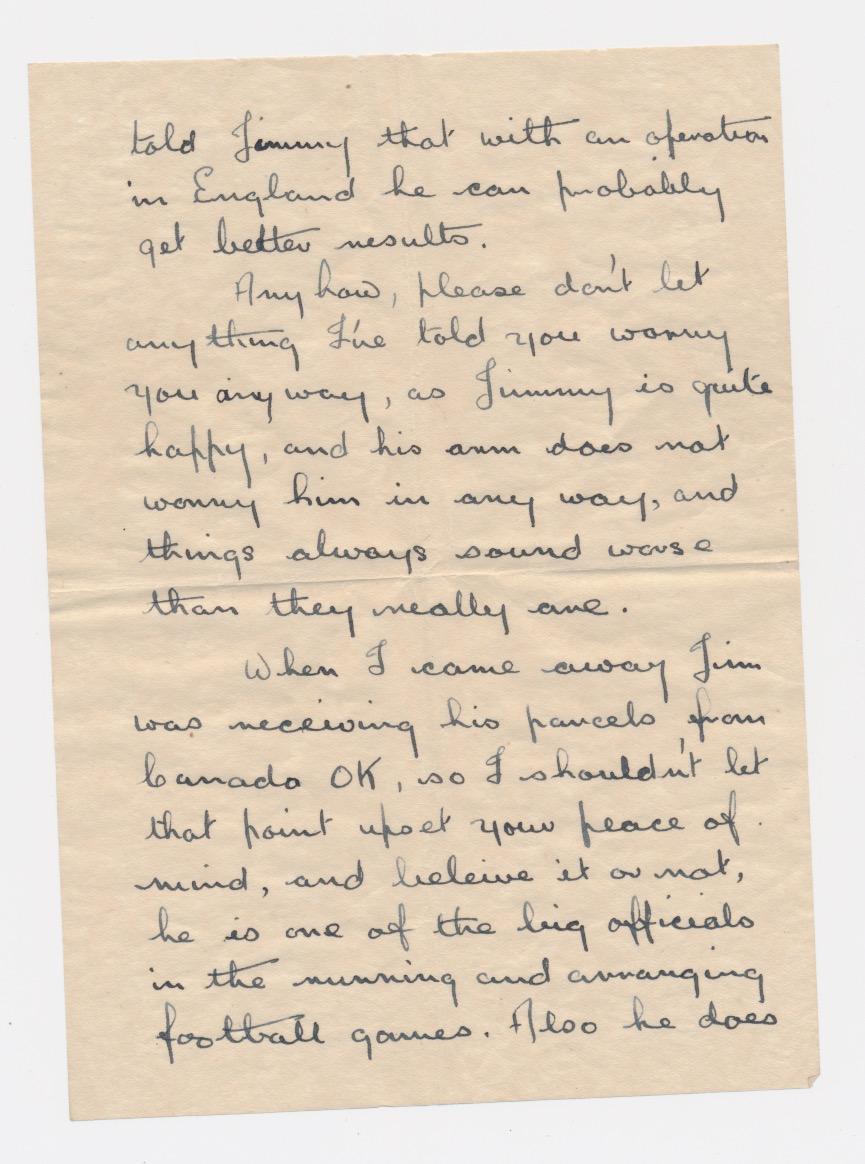 told Jimmy that with an operation
in England he can probably
get better results.
Any how, please don't let
any thing I've told you worry
you any way, as Jimmy is quite
happy, and his arm does not
worry him in any way, and
things always sound worse
than they really are.
When I came away Jim
was receiving his parcels from
Canada OK, so I shouldn't let
that point upset your peace of
mind, and beleive it or not,
he is one of the big officials
in the running and arranging
football games. Also he does